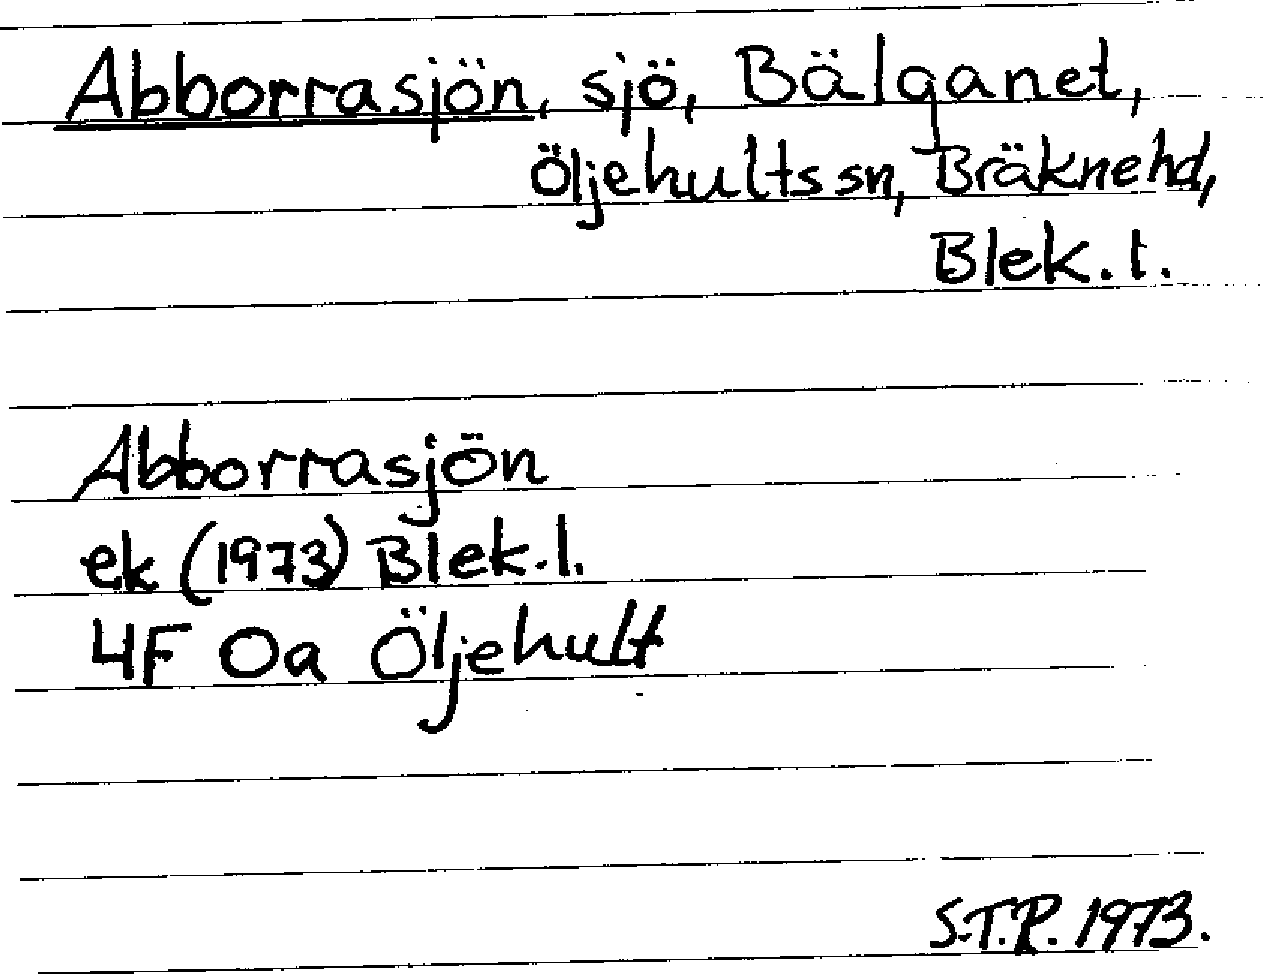 Abborrasjön, sjö, Bälganet,
Öljehults sn, Bräkne hd,
Blek. l.
Abborrasjön
ek (1973) Blek. l.
4F 0a Öljehult
S.T.R. 1973.